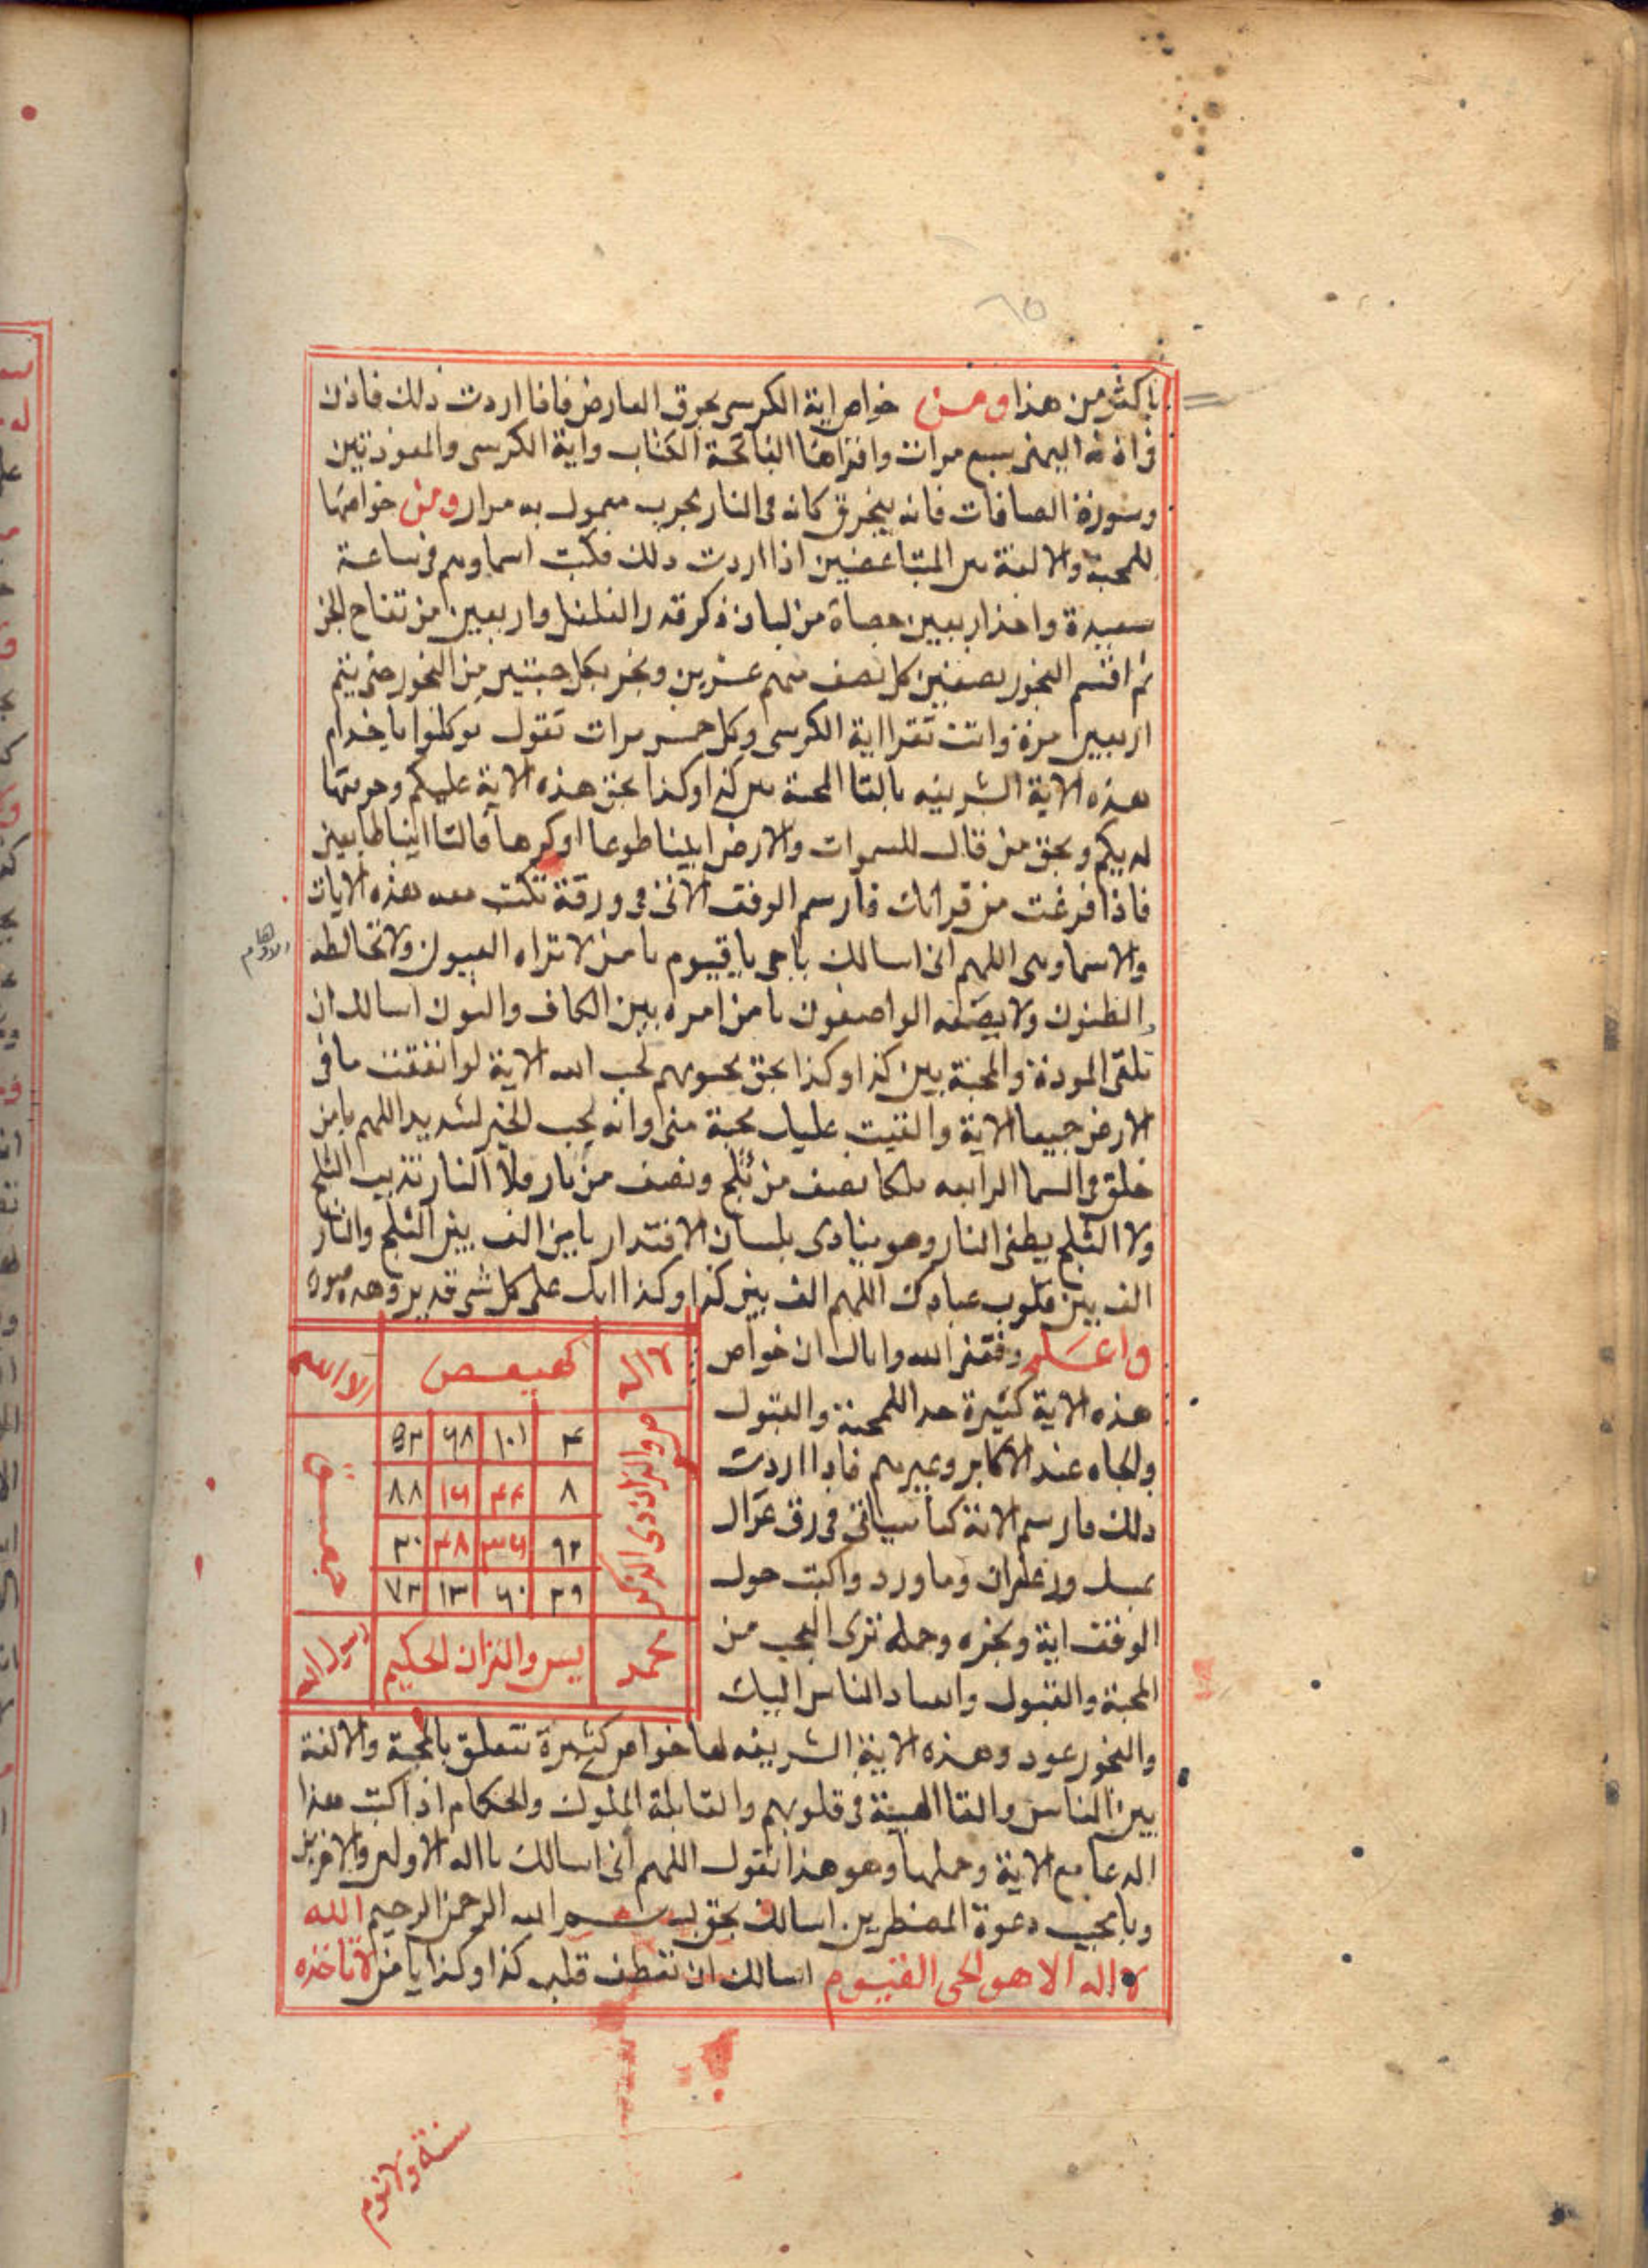 ٦٥
باكثر من هذا ومن خواص اية الكرسى بحرق العارض فاذا اردت ذلك فاذن
فى اذنه اليمنى سبع مرات واقراها الفاتحة الكتاب واية الكرسى والمعوذتين
وسورة الصافات فانه يتحرق كانه فى النار مجرب معمول به مرار ومن خواصها
للمحبة والالفة بين المتباغضين اذا اردت ذلك فكتب اسماوهم فى ساعة
سعيدة واخذ اربعين حصاة من لبان ذكر قدر الفلفل واربعين من تفاح الجن
ثم اقسم البخور نصفين كل نصف منهم عشرين وبخر بكل حبتين من البخور حتى يتم
اربعين مرة وانت تقرا اية الكرسى وكل خمس مرات تقول توكلوا يا خدام
هذه الاية الشريفه بالقا المحبة بين كذا وكذا بحق هذه الاية عليكم وحرمتها
لديكم وبحق من قال للسموات والارض ايتيا طوعا اوكرها قالتا اتينا طايعين
فاذا فرغت من قراتك فارسم الوفق الاتى فى ورقة تكتب معه هذه الايات
والاسما وهى اللهم انى اسالك ياحى ياقيوم يا من لا تراه العيون ولا تخالطه
الاوهام
الظنون ولا يصفه الواصفون يا من امره بين الكاف والنون اسالك ان
تلقى المودة والمحبة بين كذا وكذا بحق يحبونهم كحب الله الاية لو انفقت ما فى
الارض جميعا الاية والقيت عليك محبة منى وانه لحب الخير لشديد اللهم يا من
خلق فى السما الرابعه ملكا نصف من ثلج ونصف من نار فلا النار تذيب الثلج
ولا الثلج يطفى النار وهو ينادى بلسان الاقتدار يا من الف بين الثلج والنار
الف بين قلوب عبادك اللهم الف بين كذا وكذا انك على كل شى قدير وهذه صورة
واعلم وفقنى الله واياك ان خواص
هذه الاية كثيرة جدا للمحبة والقبول
والجاه عند الاكابر وغيرهم فاذا اردت
ذلك فارسم الاية كما سياتى فى رق غزال
بمسك وزعفران وماورد واكتب حول
الوفق اية وبخره وحمله ترى العجب من
المحبة والقبول وانقياد الناس اليك
لا اله كهيعص الا الله
ص والقران ذى الذكر
٤ ١٠١ ٦٨ ٥٣
٨ ٤٤ ١٦ ٨٨
٩٢ ٣٦ ٣٨ ٢٠
٢٩ ٦٠ ١٣ ٧٣
حمعسق
محمد يس والقران الحكيم رسول الله
والبخور عود وهذه الاية الشريفه لها خواص كثيرة تتعلق بالمحبة والالفة
بين الناس والقا الهيبة فى قلوبهم والمقابلة الملوك والحكام اذا كتب هذا
الدعا مع الاية وحملها وهو هذا تقول اللهم انى اسالك يا اله الاولين والاخرين
ويا مجيب دعوة المضطرين اسالك بحق بسم الله الرحمن الرحيم الله
لا اله الا هو الحى القيوم اسالك ان تعطف قلب كذا وكذا يا من لا تاخذه
سنة ولا نوم